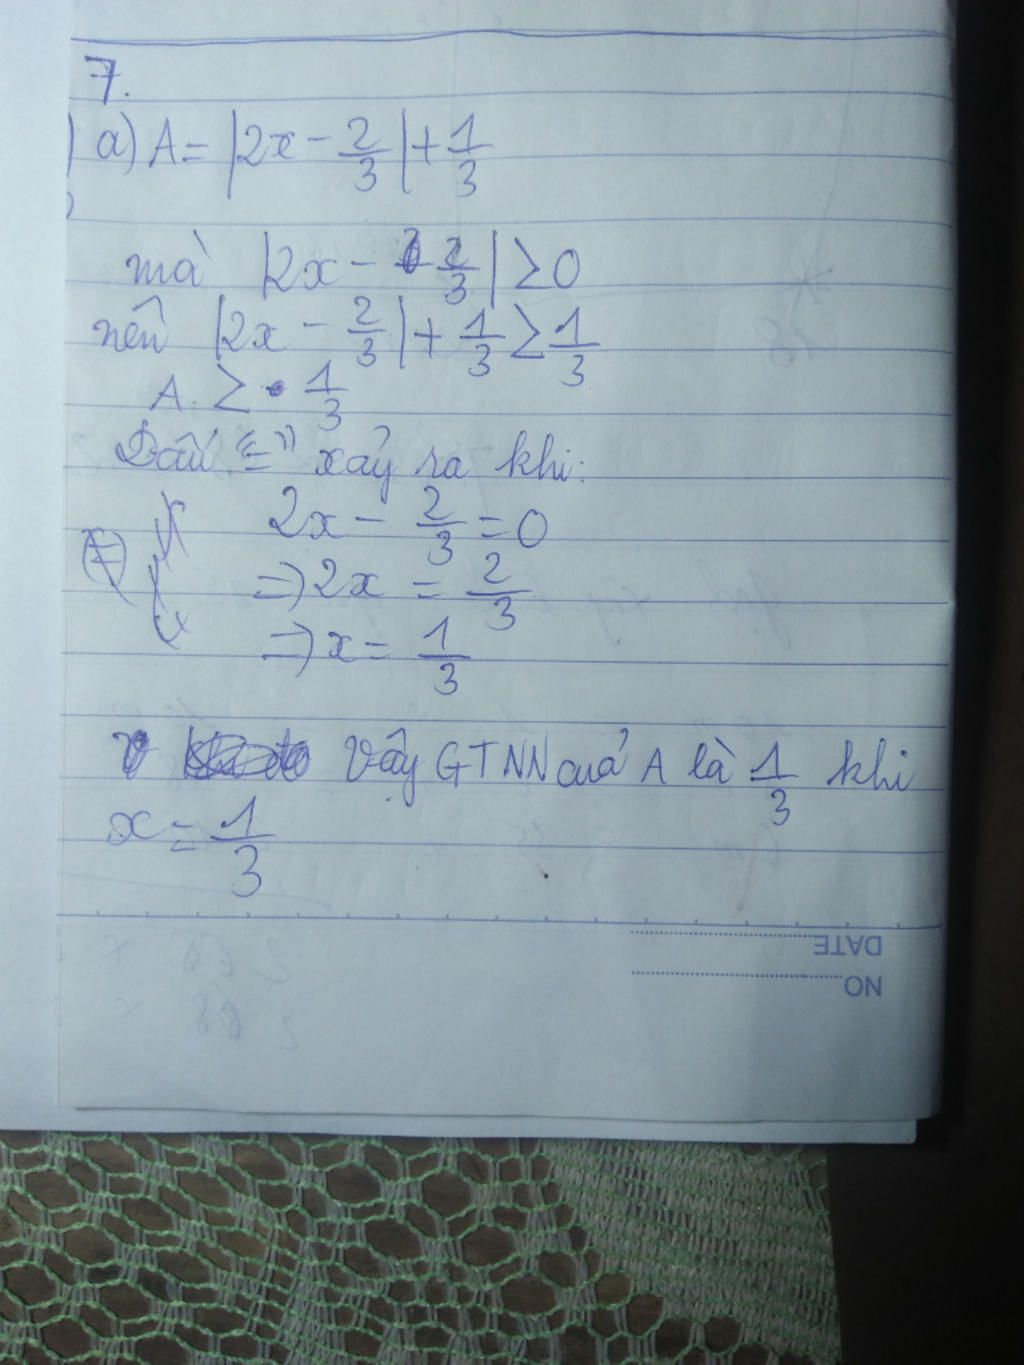 7.
a) A = |2x - 2/3| + 1/3
mà |2x - 2/3| ≥ 0
nên |2x - 2/3| + 1/3 ≥ 1/3
A ≥ 1/3
Dấu "=" xảy ra khi:
2x - 2/3 = 0
=> 2x = 2/3
=> x = 1/3
Vậy GTNN của A là 1/3 khi
x = 1/3
DATE
NO